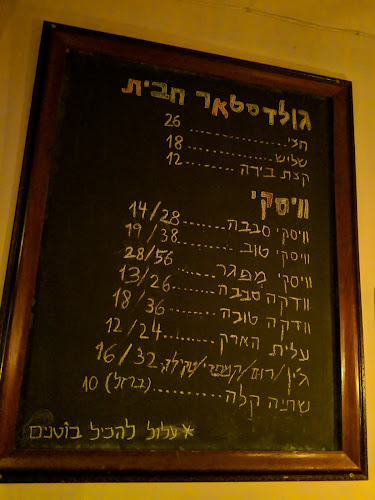 גולדסטאר חבית
חצי ........... 26
שליש ........... 18
קצת בירה ........... 12
וויסקי
וויסקי סבבה ........ 14/28
וויסקי טוב ........ 19/38
וויסקי מפגר ........ 28/56
וודקה סבבה ........ 13/26
וודקה טובה ........ 18/36
עלית הארק ........ 12/24
ג'ין/רום/קמפרי/טקילה 16/32
שתיה קלה ........ (ברזל) 10
*עלול להכיל בוטנים